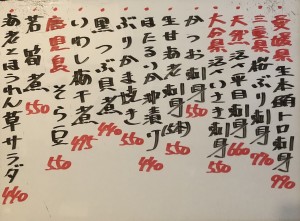 愛媛県 生本鮪トロ刺身 990
三重県 活〆ぶり刺身 770
天然 活〆平目刺身 660
大分県 活〆いさき刺身 550
かつお刺身 550
生甘あ老刺身(5本) 550
ほたるいか沖漬け 440
ぶりかま焼き 550
黒つぶ貝煮 440
いわし梅干煮 495
鹿児島 そら豆 550
若筍煮 550
あ老とほうれん草サラダ 440